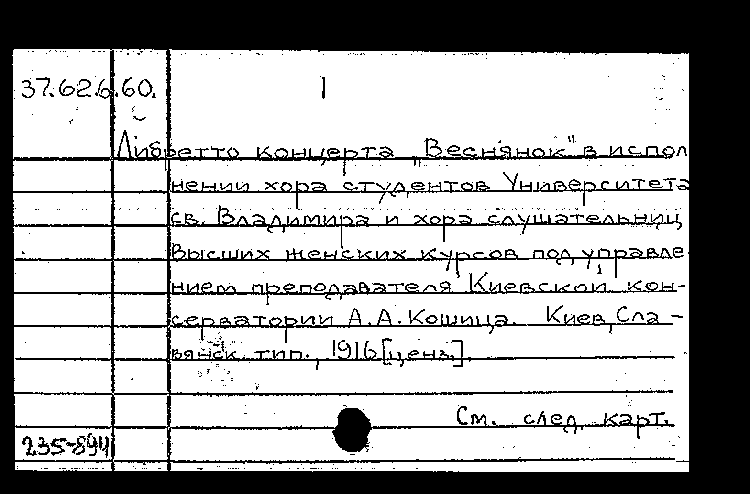 37.62.6.60. 1
Либретто концерта „Веснянок" в испол
нении хора студентов Университета
св. Владимира и хора слушательниц
Высших женских курсов под управле-
нием преподавателя Киевской кон-
серватории А.А.Кошица. Киев, Сла-
вянск. тип., 1916 [ценз.].
См. след. карт.
235-894